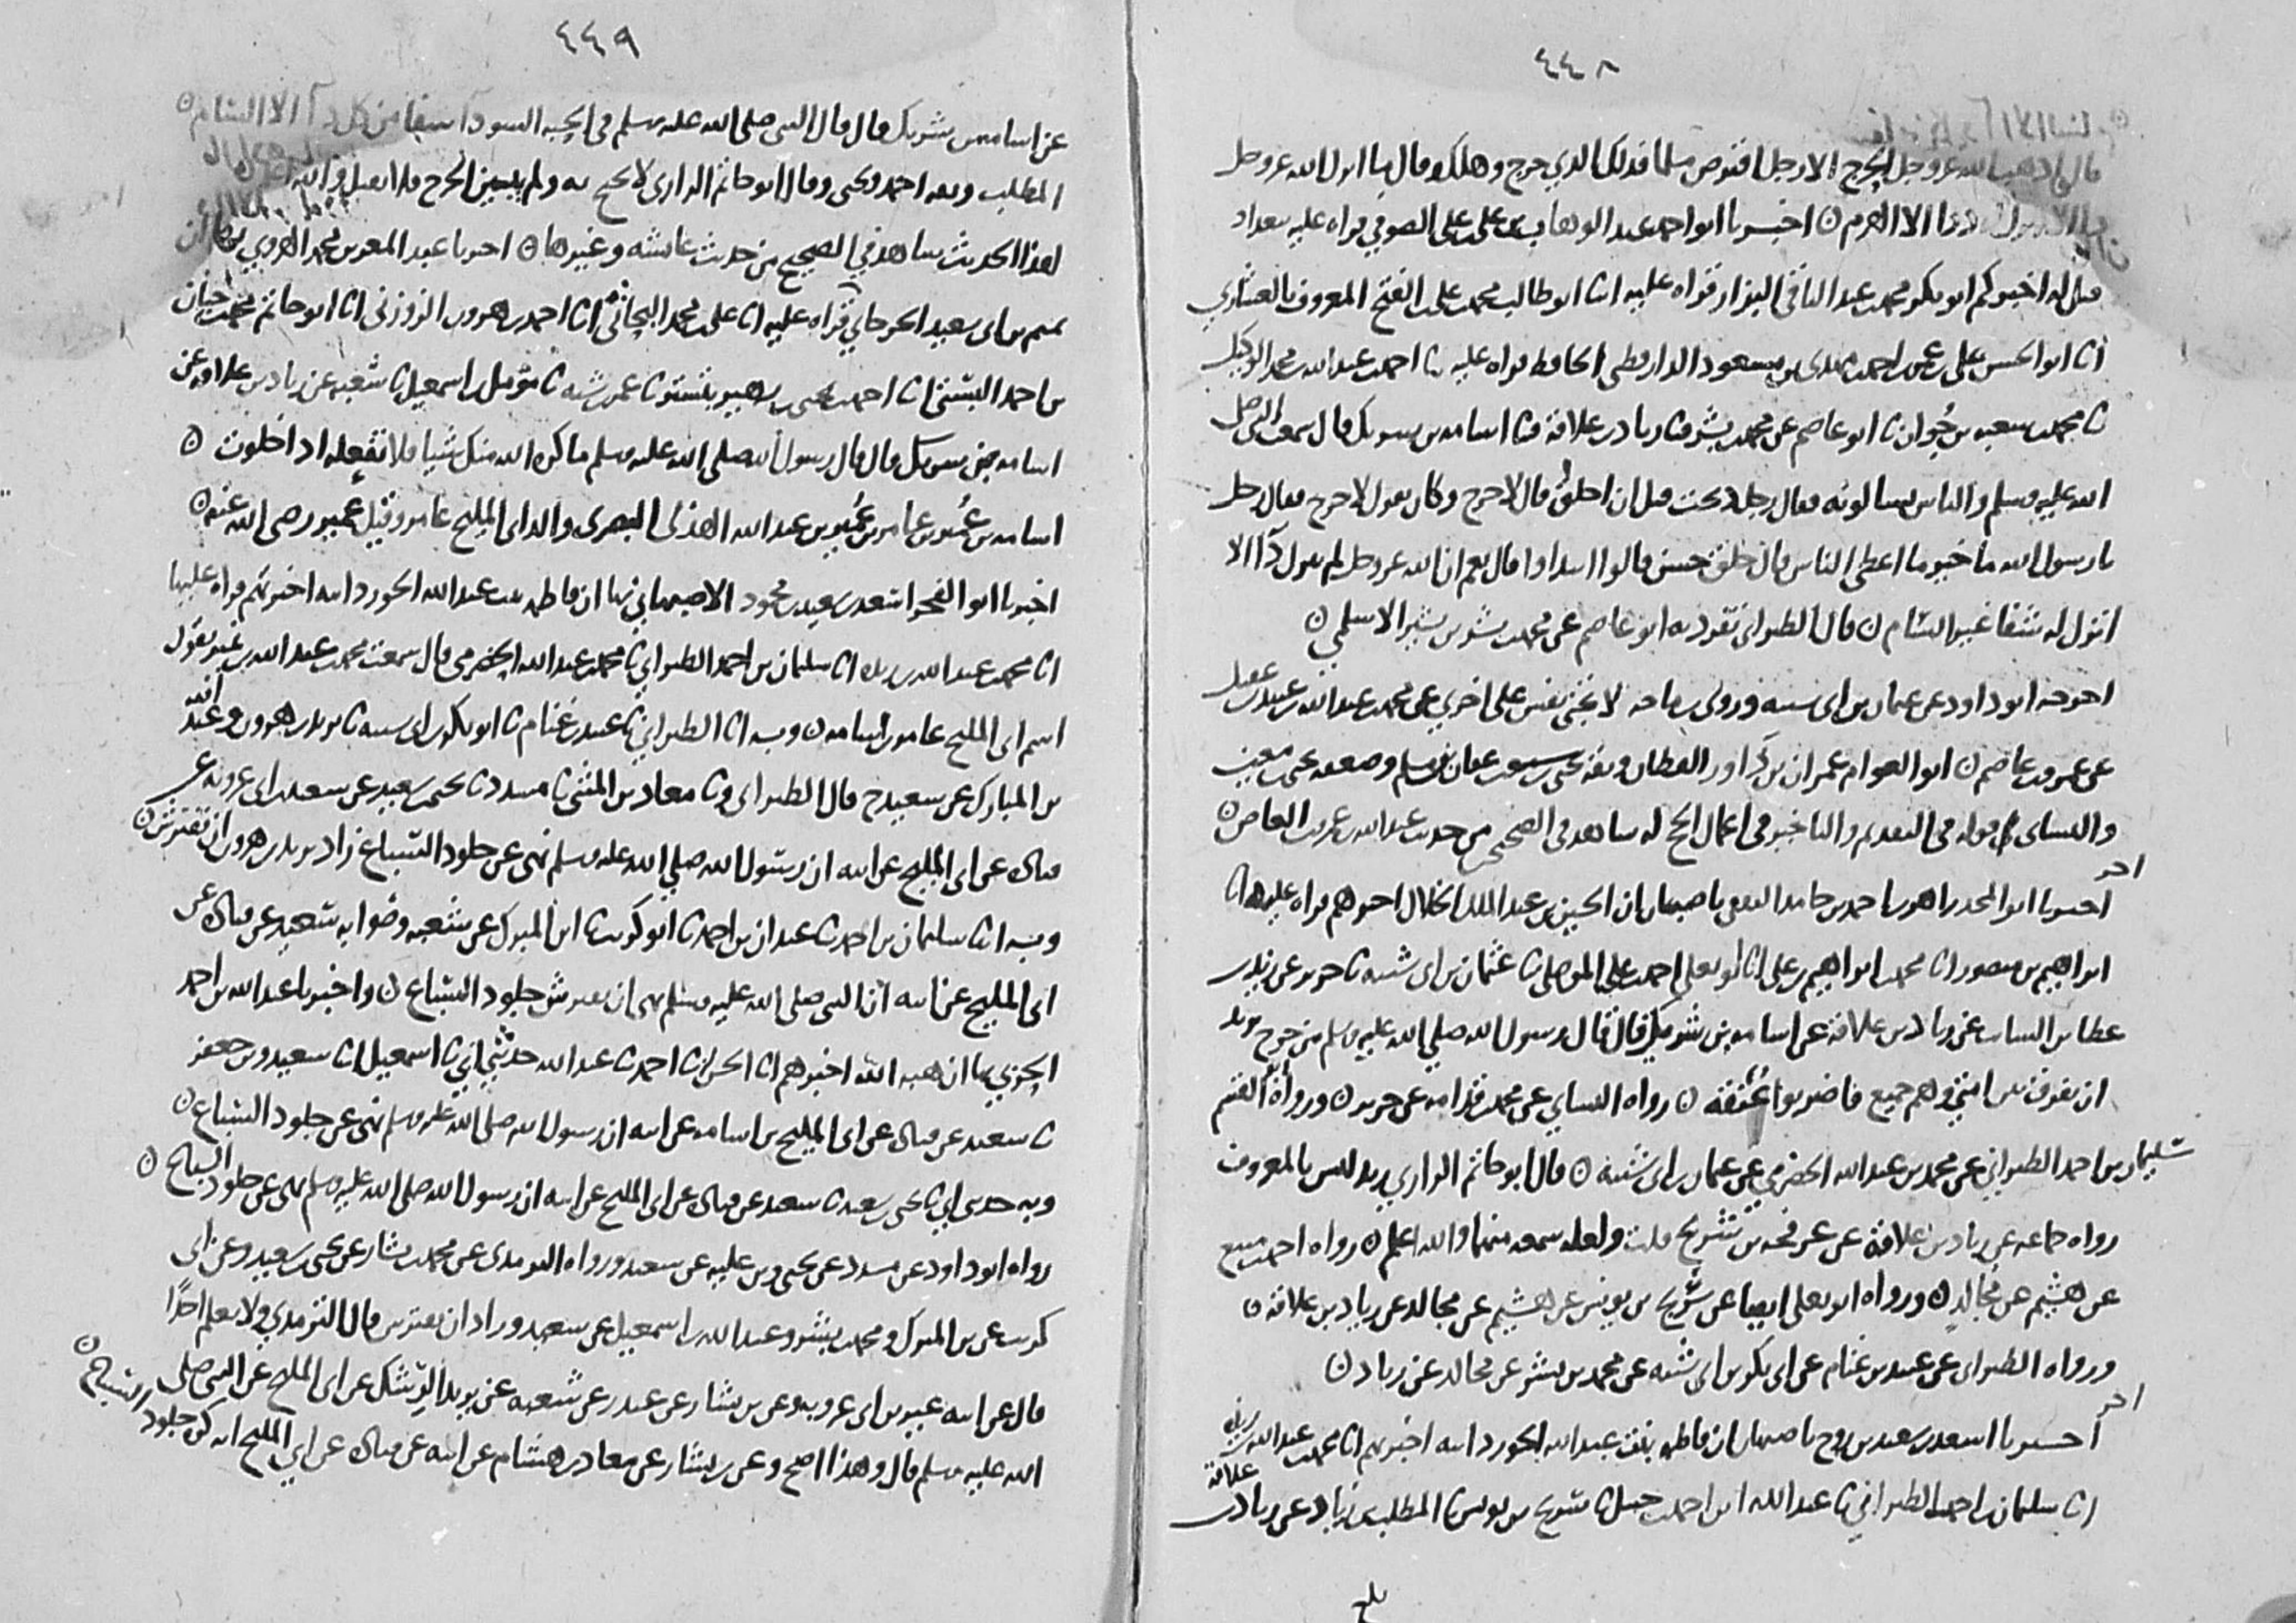 ٤٤٨
قال اذهب الله عز وجل الحرج الا رجل اقترض مسلما فذلك الذي حرج وهلك وقال ما انزل الله عز وجل
الا الهرم ۞ اخبرنا ابو احمد عبد الوهاب بن علي بن علي الصوفي قراه عليه ببغداد
قيل له اخبركم ابو بكر محمد بن عبد الباقي البزاز قراه عليه انا ابو طالب محمد بن علي بن الفتح المعروف بالعشاري
انا ابو الحسن علي بن عمر بن احمد بن مهدي بن مسعود الدارقطني الحافظ قراه عليه نا احمد بن عبد الله بن محمد الوكيل
نا محمد بن سعيد بن نا ابو عاصم عن محمد بن بشر نا زياد بن علاقة نا اسامه بن شريك قال سمعت النبي صلى
الله عليه وسلم والناس يسالونه فقال رجل ذبحت قبل ان احلق قال لا حرج وكان يقول لا حرج فقال رجل
يا رسول الله ما خير ما اعطي الناس قال خلق حسن قالوا انتداوا قال نعم ان الله عز وجل لم ينزل دآ الا
انزل له شفا غير السام ۞ قال الطبراني تفرد به ابو عاصم عن محمد بن بشر بن بشير الاسلمي ۞
اخرجه ابو داود عن عثمان بن ابي شيبه وروى لا تجني نفس على اخرى عن محمد بن عبد الله بن عبيد بن عقيل
عن عمرو بن عاصم ۞ ابو العوام عمران بن داور القطان وثقه عفان بن مسلم وضعفه يحيى بن معين
والنساي قوله في التقديم والتاخير في اعمال الحج له شاهد في الصحيح من حديث عبد الله بن عمرو بن العاص ۞
اخر
اخبرنا ابو المجد زاهر بن احمد بن حامد الثقفي باصبهان ان الحسين بن عبد الملك الخلال اخبرهم قراه عليه انا
ابراهيم بن منصور انا محمد بن ابراهيم بن علي انا ابو يعلى احمد بن علي الموصلي نا عثمان بن ابي شيبه نا جرير عن زيد بن
عطا بن السايب عن زياد بن علاقة عن اسامه بن شريك قال قال رسول الله صلي الله عليه وسلم من خرج يريد
ان يفرق بين امتي وهم جميع فاضربوا عنقه ۞ رواه النساي عن محمد بن قدامه عن جرير ۞ ورواه ابو القسم
سليمان بن احمد الطبراني عن محمد بن عبد الله الحضرمي عن عثمان بن ابي شيبه ۞ قال ابو حاتم الرازي زيد ليس بالمعروف
رواه جماعه عن زياد بن علاقة عن عرفجه بن شريح قلت ولعله سمعه منهما والله اعلم ۞ رواه احمد بن منيع
عن هشيم عن مجالد ۞ ورواه ابو يعلى ايضا عن سريج بن يونس عن هشيم عن مجالد عن زياد بن علاقه ۞
ورواه الطبراني عن عبيد بن غنام عن ابي بكر بن ابي شيبه عن محمد بن بشر عن مجالد عن زياد ۞
اخر
اخبرنا اسعد بن سعيد بن روح باصبهان ان فاطمه بنت عبد الله الجوزدانيه اخبرتهم انا محمد بن عبد الله بن ريذه
انا سليمان بن احمد الطبراني نا عبد الله بن احمد بن حنبل نا سريج بن يونس نا المطلب بن زياد عن زياد بن علاقة
بلغ
٤٤٩
عن اسامه بن شريك قال قال النبي صلى الله عليه وسلم في الحبه السودآ شفا من كل دآ الا السام ۞
المطلب وثقه احمد ويحيى وقال ابو حاتم الرازي لا يحتج به ولم يبين الجرح فلا يقبل والله اعلم
لهذا الحديث شاهد في الصحيح من حديث عائشه وغيرها ۞ اخبرنا عبد المعز بن محمد الهروي
تميم بن ابي سعيد الجرجاني قراه عليه انا علي بن محمد البحاثي انا محمد بن احمد بن هرون الزوزني انا ابو حاتم محمد بن حبان
بن احمد البستي نا احمد بن يحيى بن زهير بتستر نا عمر بن شبه نا مؤمل بن اسمعيل نا شعبه عن زياد بن علاقه عن
اسامه بن شريك قال قال رسول الله صلى الله عليه وسلم ما كره الله منك شيا فلا تفعله اذا خلوت ۞
اسامه بن عمير بن عامر بن عمير بن عبد الله الهذلي البصري والد ابي المليح عامر وقيل عمير رضي الله عنه ۞
اخبرنا ابو الفخر اسعد بن سعيد بن محمود الاصبهاني بها ان فاطمه بنت عبد الله الجوزدانيه اخبرتهم قراه عليها
انا محمد بن عبد الله بن ريذه انا سليمان بن احمد الطبراني نا محمد بن عبد الله الحضرمي قال سمعت محمد بن عبد الله بن نمير يقول
اسم ابي المليح عامر بن اسامه ۞ وبه انا الطبراني نا عبيد بن غنام نا ابو بكر بن ابي شيبه نا يزيد بن هرون وعبد الله
بن المبارك عن سعيد ح قال الطبراني ونا معاذ بن المثنى نا مسدد نا يحيى بن سعيد عن سعيد بن ابي عروبه عن
قتاده عن ابي المليح عن ابيه ان رسول الله صلي الله عليه وسلم نهى عن جلود السباع زاد يزيد بن هرون ان تفترش ۞
وبه انا سليمان بن احمد نا عبدان بن احمد نا ابو كريب نا ابن المبرك عن شعبه وصوابه سعيد عن قتاده عن
ابي المليح عن ابيه ان النبي صلى الله عليه وسلم نهى ان تفترش جلود السباع ۞ واخبرنا عبد الله بن احمد
الحربي بها ان هبه الله اخبرهم انا الحسن انا احمد نا عبد الله حدثني ابي نا اسمعيل انا سعيد وبن جعفر
نا سعيد عن قتاده عن ابي المليح بن اسامه عن ابيه ان رسول الله صلى الله عليه وسلم نهى عن جلود السباع ۞
وبه حدثني ابي نا يحيى بن سعيد نا سعيد عن قتاده عن ابي المليح عن ابيه ان رسول الله صلى الله عليه وسلم نهى عن جلود السباع ۞
رواه ابو داود عن مسدد عن يحيى وبن عليه عن سعيد ورواه الترمذي عن محمد بن بشار عن يحيى بن سعيد وعن ابي
كريب عن بن المبرك ومحمد بن بشر وعبد الله بن اسمعيل عن سعيد وزاد ان تفترش قال الترمذي ولا نعلم احدا
قال عن ابيه غير بن ابي عروبه وعن بن بشار عن غندر عن شعبه عن يزيد الرشك عن ابي المليح عن النبي صلى
الله عليه وسلم قال وهذا اصح وعن بن بشار عن معاذ بن هشام عن ابيه عن قتاده عن ابي المليح انه كره جلود السباع ۞